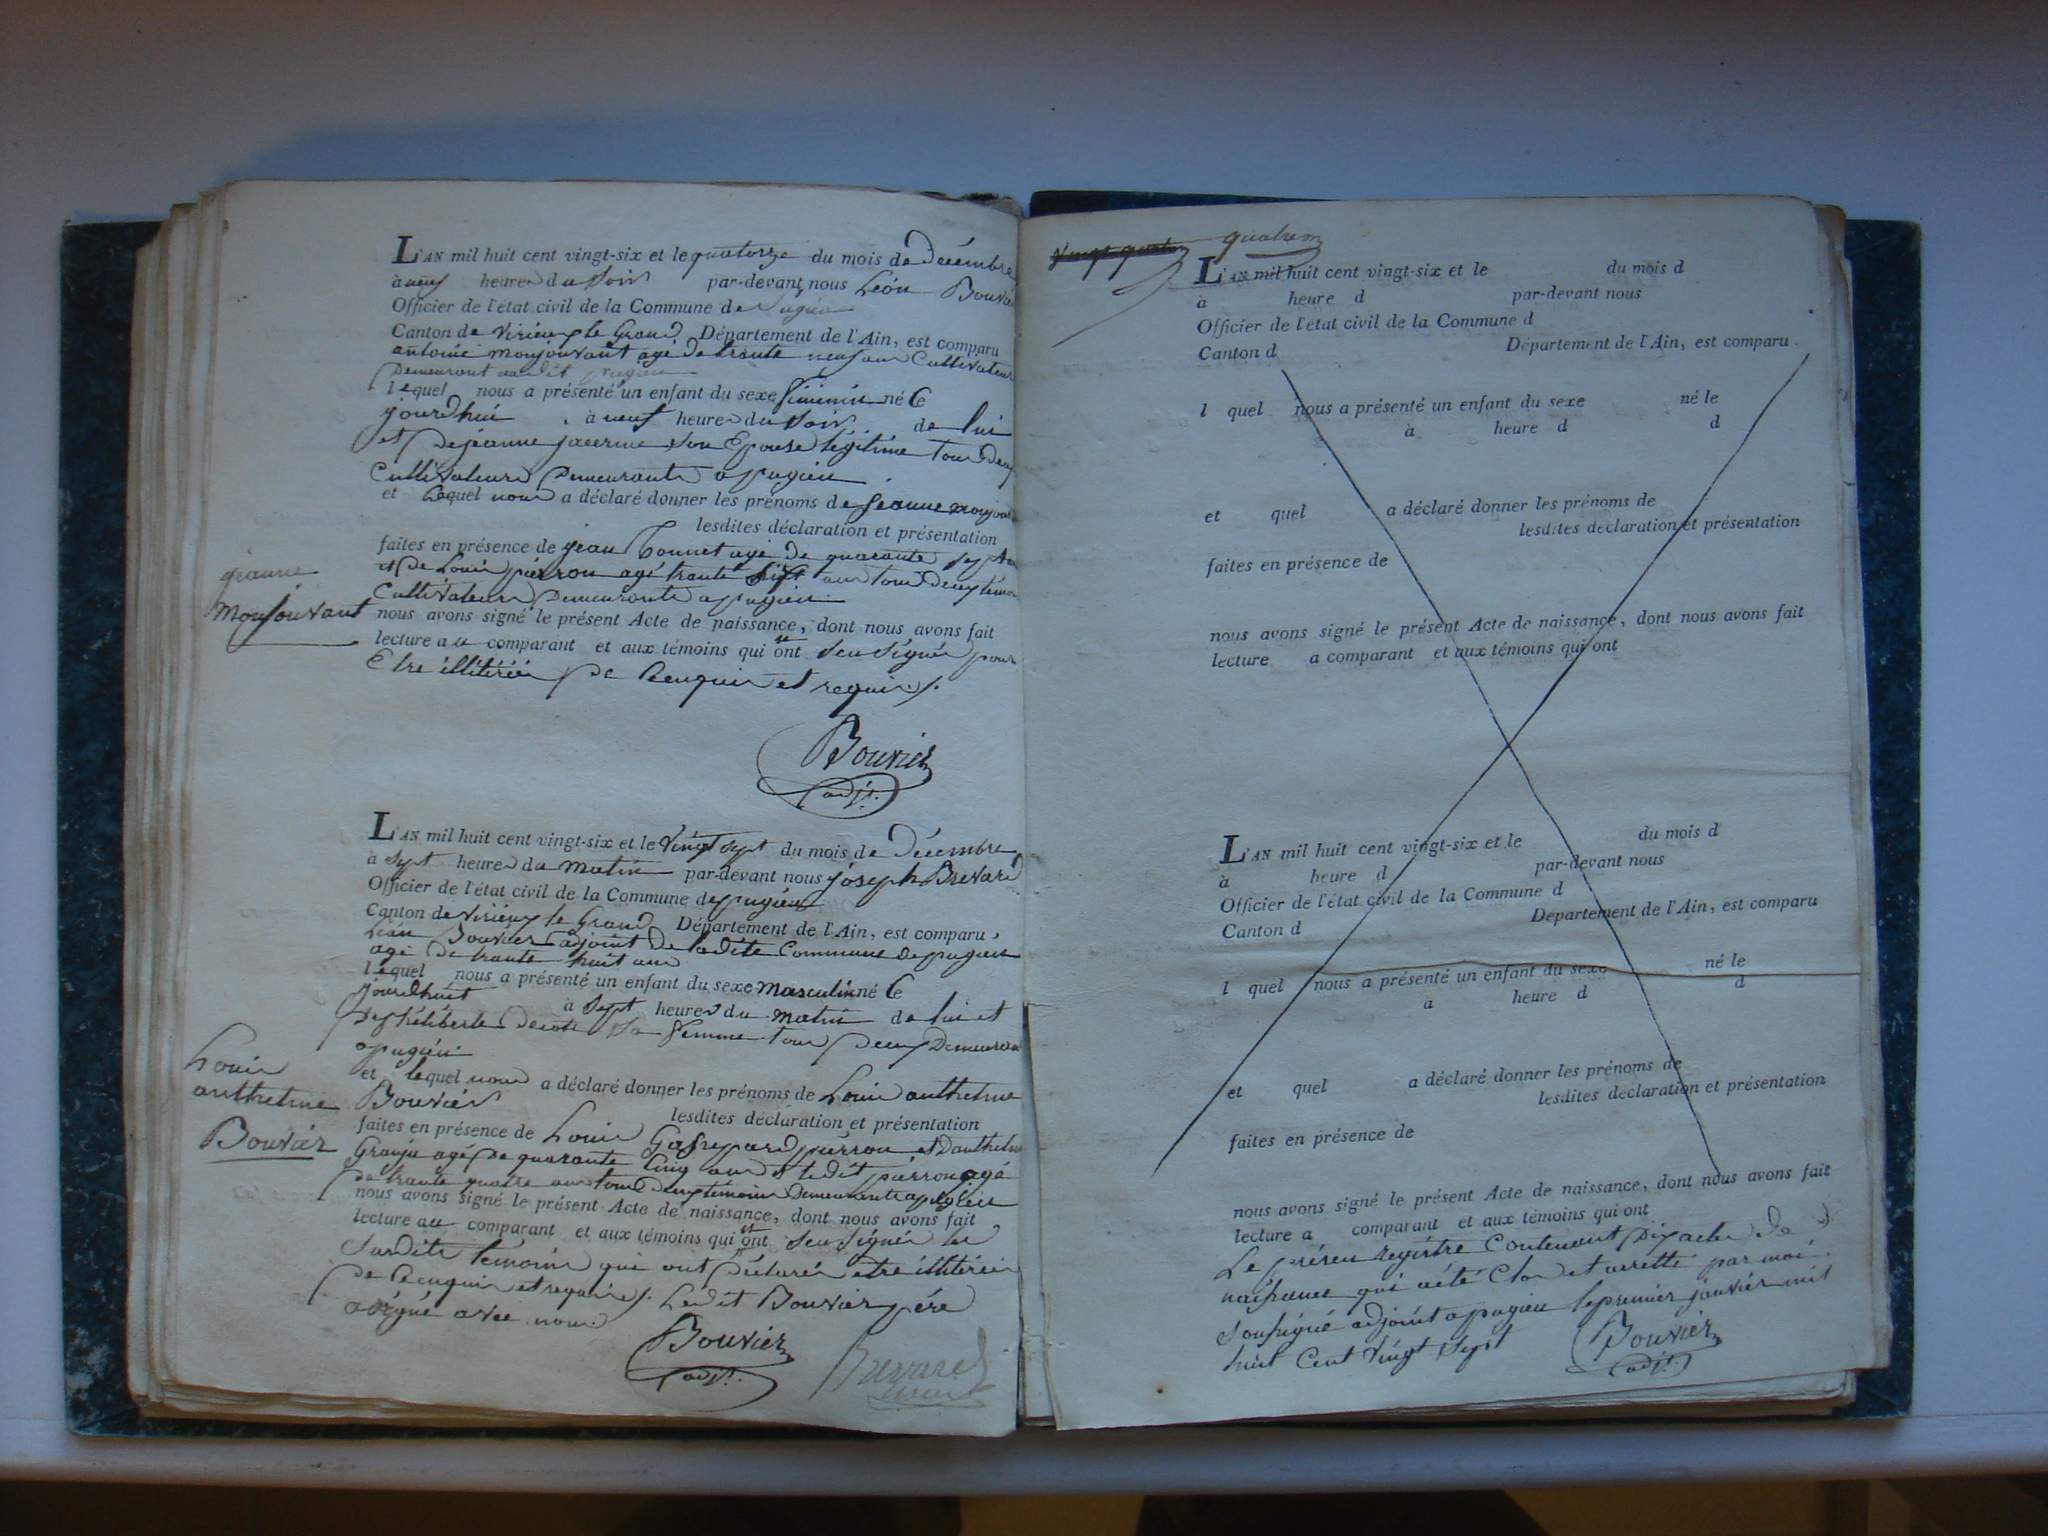 L'AN mil huit cent vingt-six et le quatorze du mois de Décembre
à neuf heure du Soir par-devant nous Léon Bouvier
Officier de l'état civil de la Commune de Pugieu
Canton de Virieux le Grand Département de l'Ain, est comparu
antoine monjouvant agé de trante neuf ans Cultivateur
Demeurant audit pugieu
lequel nous a présenté un enfant du sexe féminin né Ce
jourdhui à neuf heure du Soir de lui
et De jeanne son Epouse légitime tous deux
Cultivateurs Demeurants a pugieu
et lequel nous a déclaré donner les prénoms de jeanne monjouvant
lesdites déclaration et présentation
faites en présence de jean Bonnet agé de quarante sept ans
et de Louis pierron agé trante ans tous deux témoins
Cultivateurs Demeurants a pugieu
jeanne
monjouvant
nous avons signé le présent Acte de naissance, dont nous avons fait
lecture au comparant et aux témoins qui ont seu signer pour
Etre illitéréz De Ce enquis et requis
Bouvier
adjt.
L'AN mil huit cent vingt-six et le vingt sept du mois de Décembre
à Sept heure du matin par-devant nous joseph Brevard
Officier de l'état civil de la Commune de pugieu
Canton de Virieux le Grand Département de l'Ain, est comparu
Léon Bouvier adjoint de ladite Commune de pugieu
agé de trante huit ans
lequel nous a présenté un enfant du sexe masculin né Ce
jourdhuit à Sept heures du matin de lui et
sa femme tous deux Demeurant
a pugieu
et lequel nous a déclaré donner les prénoms de Louis anthelme
Bouvier
Louis
anthelme
Bouvier
lesdites déclaration et présentation
faites en présence de Louis Gaspard pierron et Danthelme
agé De quarante Cinq ans et ledit pierron agé
De trante quatre ans tous deux témoins Demeurants a pugieu
nous avons signé le présent Acte de naissance, dont nous avons fait
lecture au comparant et aux témoins qui ont seu signer les
Susdits témoins qui ont Déclaréz etre illitéréz
De Ce enquis et requis. Ledit Bouvier pére
a signé avec nous
Bouvier
adjt.
Brevard
maire
quatre
L'AN mil huit cent vingt-six et le du mois d
à heure d par-devant nous
Officier de l'état civil de la Commune d
Canton d Département de l'Ain, est comparu
l quel nous a présenté un enfant du sexe né le
à heure d d
et quel a déclaré donner les prénoms de
lesdites déclaration et présentation
faites en présence de
nous avons signé le présent Acte de naissance, dont nous avons fait
lecture a comparant et aux témoins qui ont
L'AN mil huit cent vingt-six et le du mois d
à heure d par-devant nous
Officier de l'état civil de la Commune d
Canton d Département de l'Ain, est comparu
l quel nous a présenté un enfant du sexe né le
à heure d d
et quel a déclaré donner les prénoms de
lesdites déclaration et présentation
faites en présence de
nous avons signé le présent Acte de naissance, dont nous avons fait
lecture a comparant et aux témoins qui ont
Le présent registre Contenant Dix actes de
naissance qui a été Clos et arretté par moi
soussigné adjoint a pugieu le premier janvier mil
huit Cent vingt Sept
Bouvier
adjt.